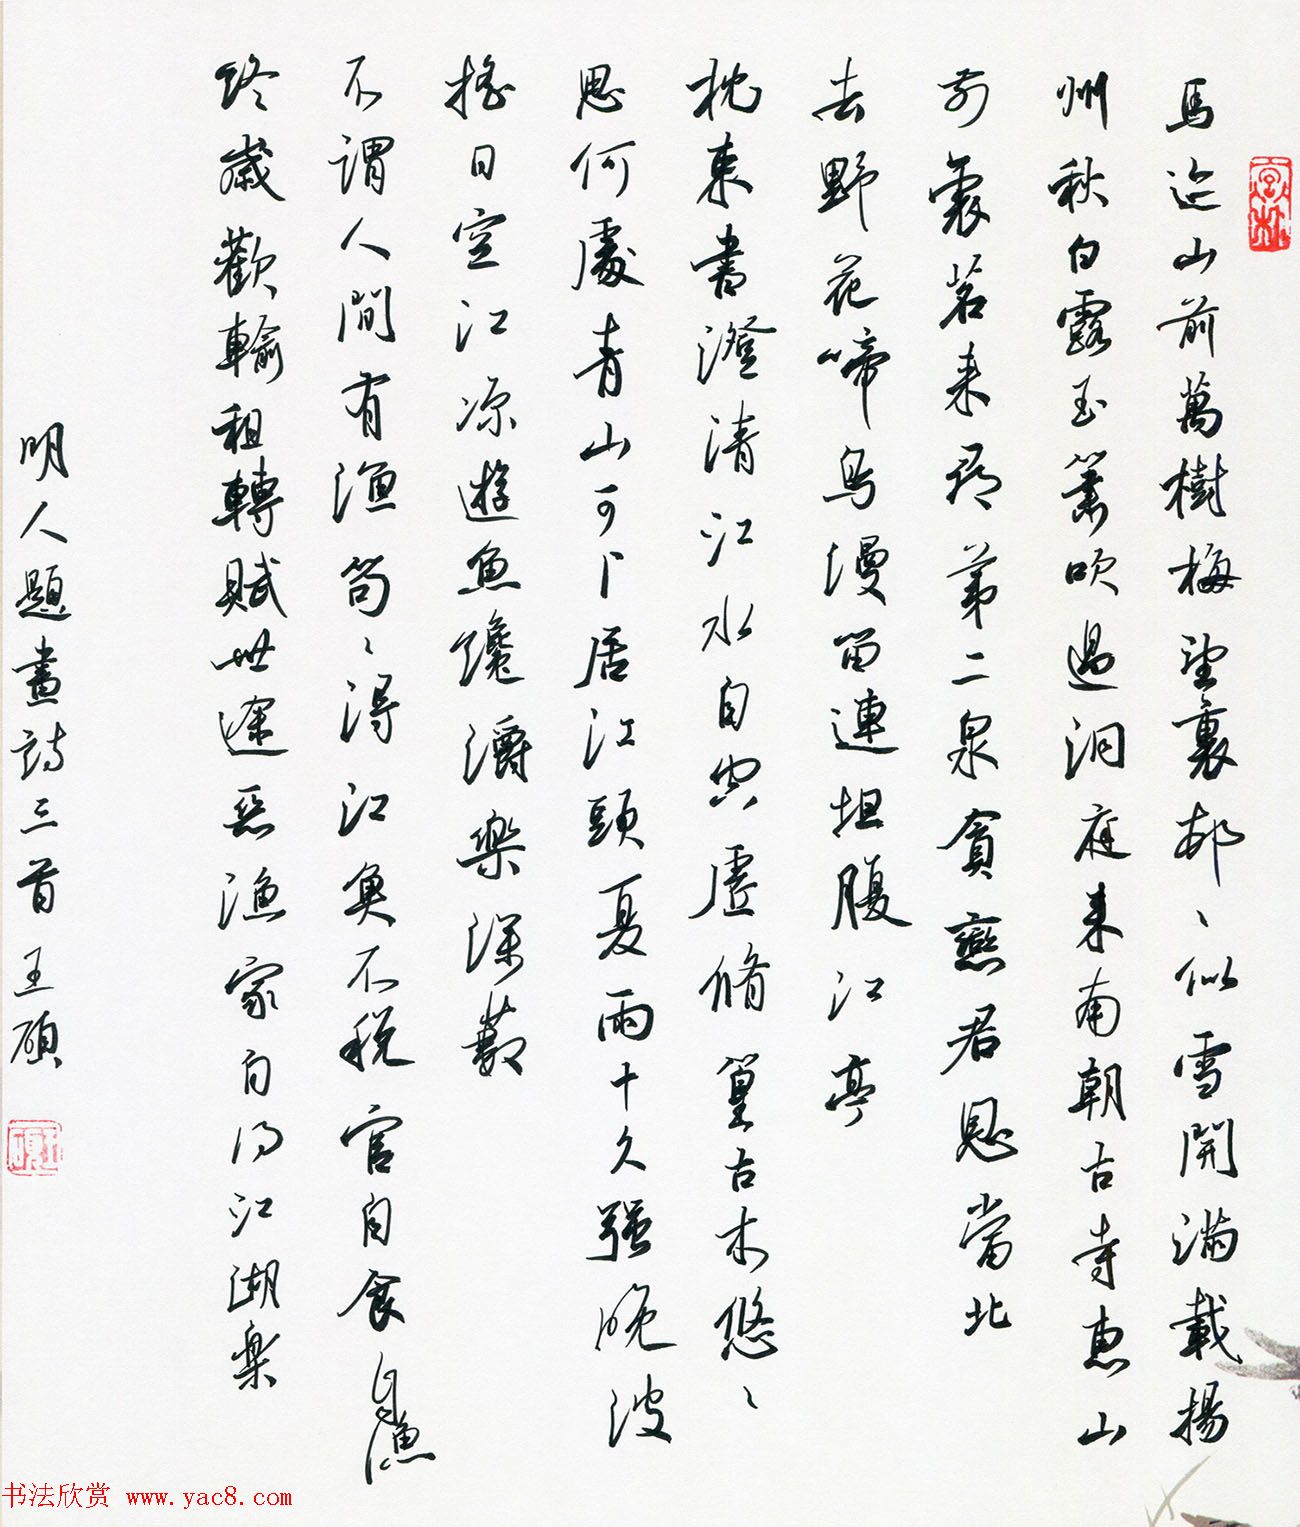 馬迹山前萬樹梅望裏都〻似雪開滿載揚
州秋白露玉簫吹過洞庭来南朝古寺惠山
前裹茗来尋第二泉貪戀君恩當北
去野花啼鸟漫留連坦腹江亭
枕束書澄清江水自空虛脩篁古木悠〻
思何處青山可卜居江頭夏雨十尺强晚波
摇日空江凉遊魚灂樂深藪
不謂人間有漁笱〻得江魚不税官自食自漁
终歲歡輸租轉賦世途惡漁家自得江湖樂
明人題畫詩三首王碩
书法欣赏 www.yac8.com